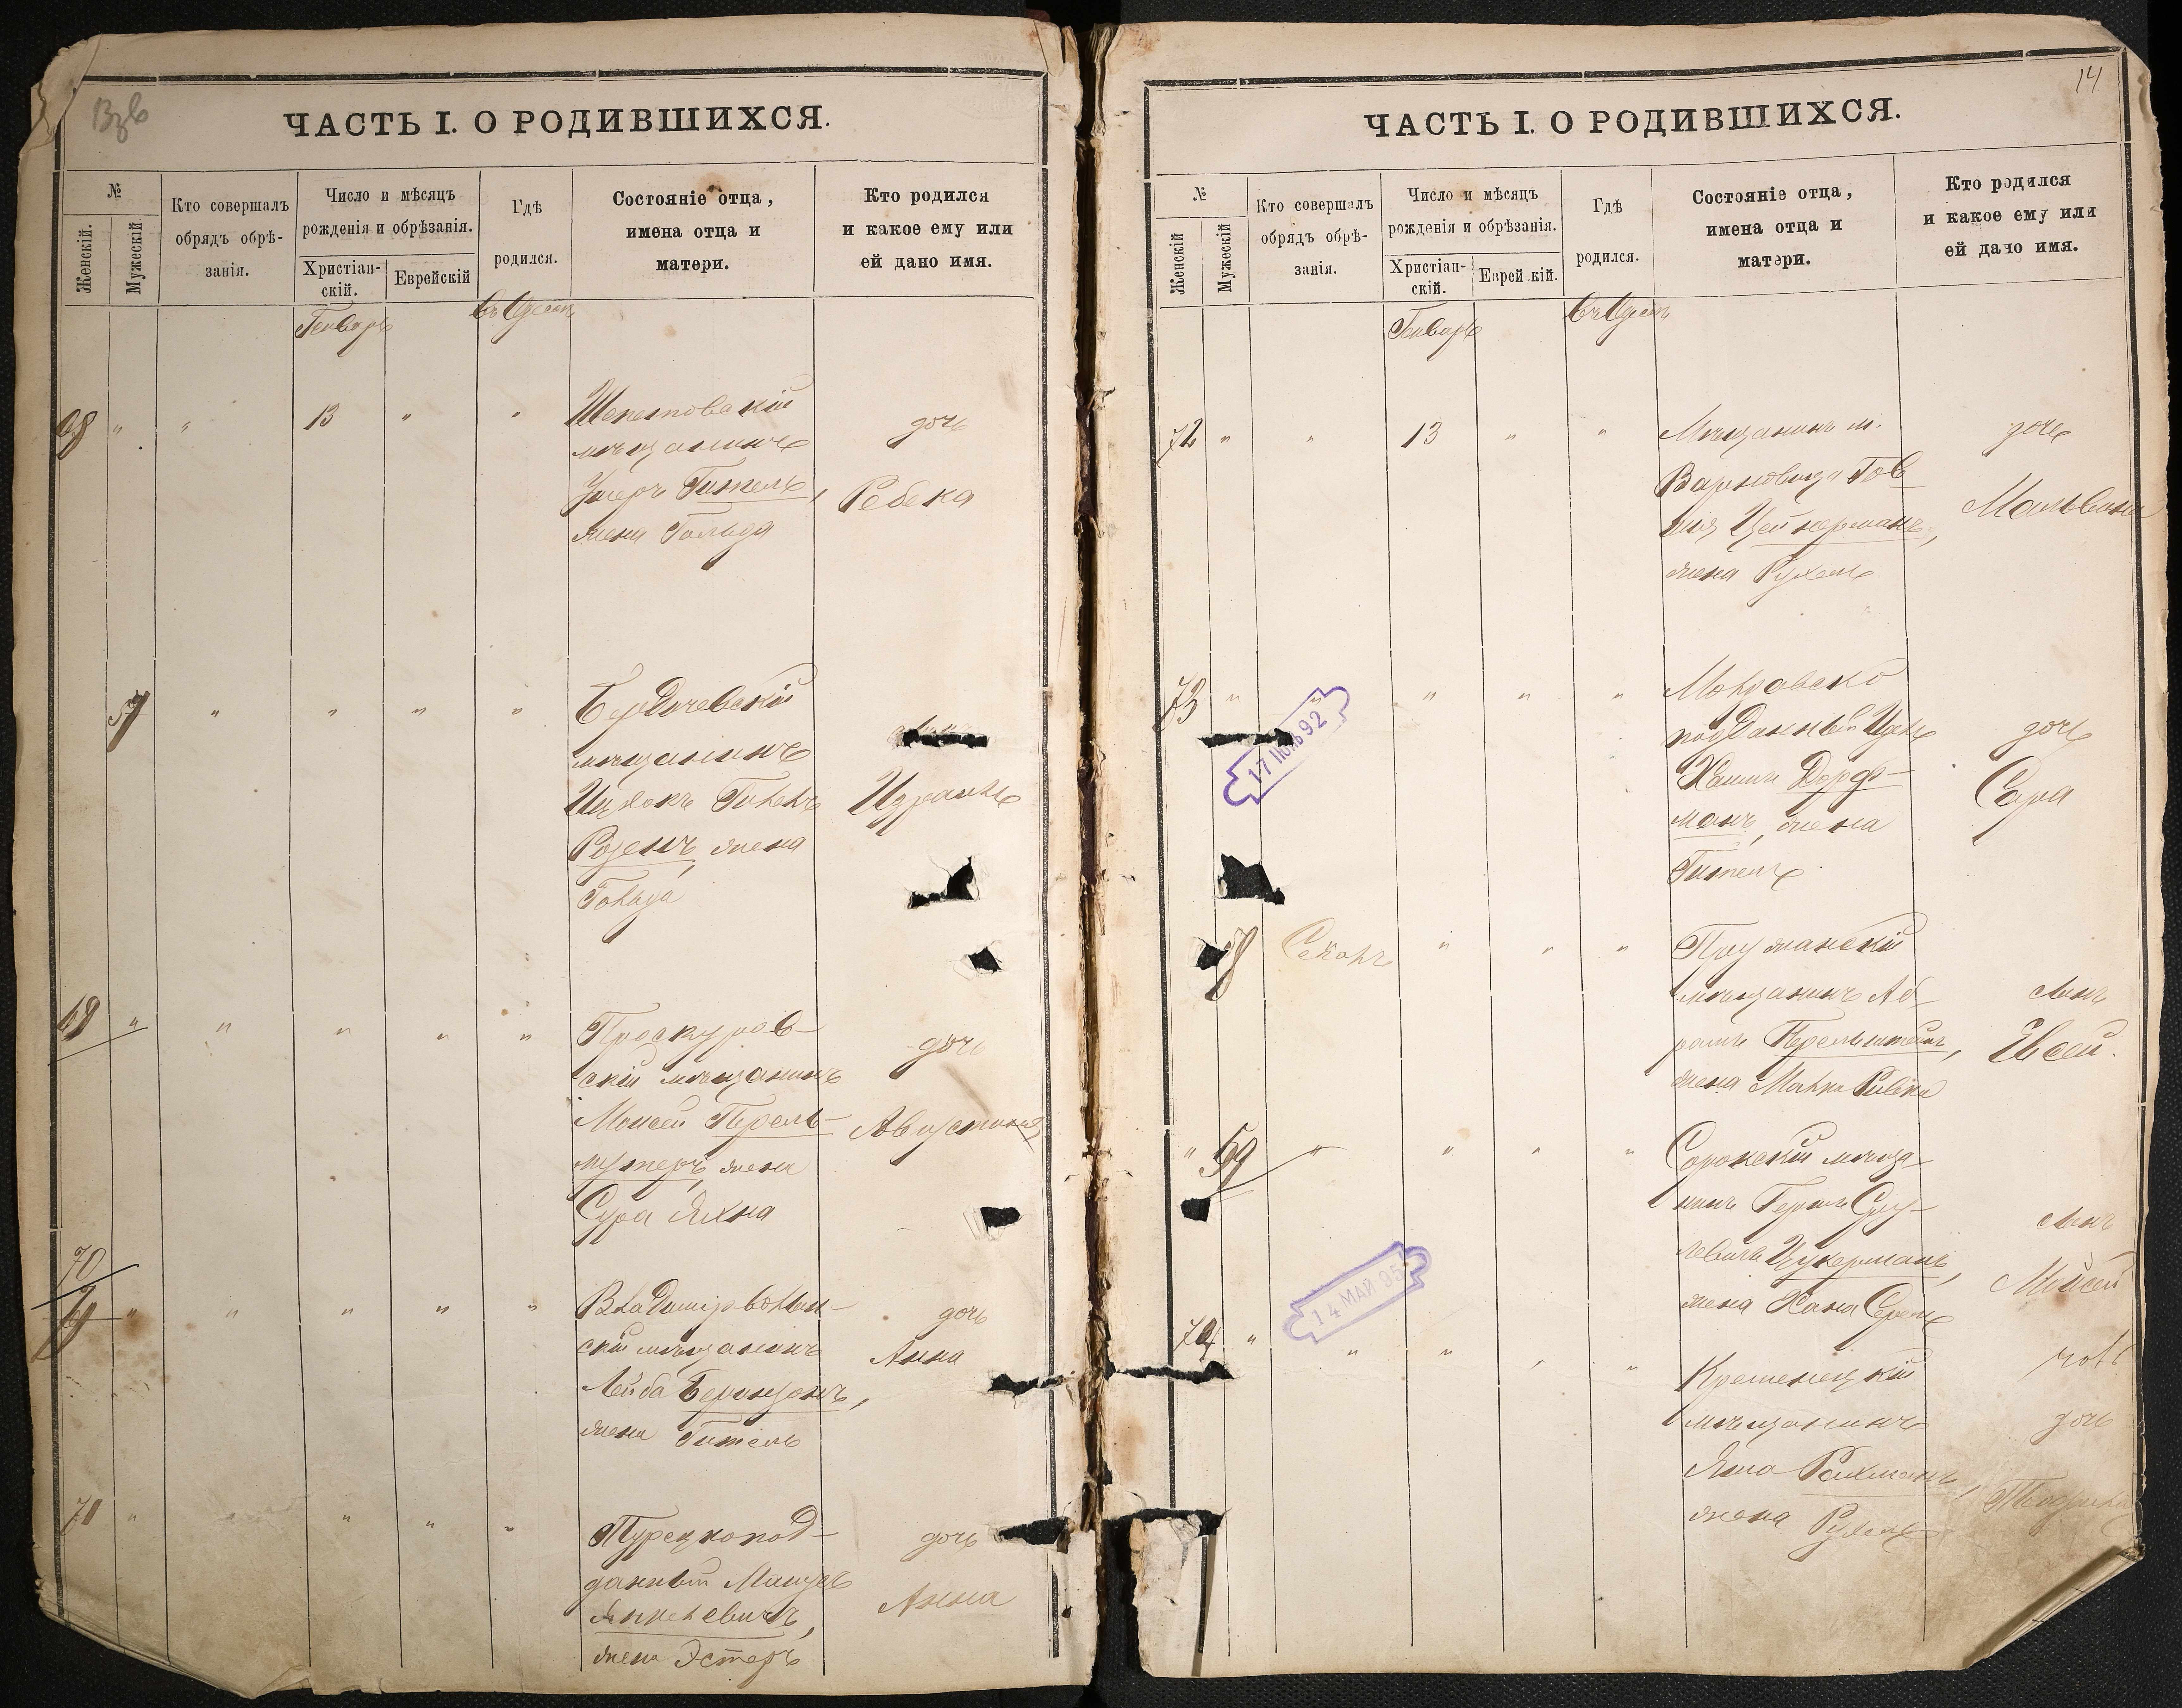 Взв
ЧАСТЬ I. О РОДИВШИХСЯ.
№
Женскій.
Мужескій
Кто совершалъ
обрядъ обрѣ-
занія.
Число и мѣсяцъ
рожденія и обрѣзанія.
Христіан-
скій.
Еврейскій
Гдѣ
родился.
Состояніе отца,
имена отца и
матери.
Кто родился
и какое ему или
ей дано имя.
Генварь
въ Одессѣ
68 " " 13 " "
Шепетовскій
мѣщанинъ
Ушеръ Гительъ,
жена Гольда
дочь
Ребека
57 " " " "
Бердичевскій
мѣщанинъ
Ицхокъ Гилель
Розенъ, жена
Гольда
Израиль
69 " " " " "
Проскуров-
скій мѣщанинъ
Моисей Перель-
мутеръ, жена
Сура Яхна
дочь
Августина
70
" " " " "
Владимірволын-
скій мѣщанинъ
Лейба Беронзонъ,
жена Гитель
дочь
Анна
71 " " " " "
Турецкопод-
данный
Янкелевичъ,
жена Эстеръ
дочь
Анна
14
ЧАСТЬ I. О РОДИВШИХСЯ.
№
Женскій
Мужескій
Кто совершалъ
обрядъ обрѣ-
занія.
Число и мѣсяцъ
рожденія и обрѣзанія.
Христіан-
скій.
Еврей кій.
Гдѣ
родился.
Состояніе отца,
имена отца и
матери.
Кто родился
и какое ему или
ей дано имя.
Генварь
въ Одессѣ
72 " " 13 " "
Мѣщанинъ м.
Варковица Тов
Цейкерманъ,
жена Рухель
дочь
Мальвина
73 " " " "
17 ІЮНЬ 92
Молдавско
подданный
Хаимъ Дорф-
манъ, жена
Гитель
дочь
Сара
58 " " "
Пружанскій
мѣщанинъ Аб-
рамъ Перельштейнъ,
жена Малка Ривка
сынъ
Евсей.
" 59 " " " "
Сорокскій мѣща-
нинъ Гершъ Сру-
левичъ Цукерманъ,
жена Хана
сынъ
Мойсей
14 МАЙ 95
74 " " " "
Кременецкій
мѣщанинъ
Рахманъ,
жена Рухель
дочь